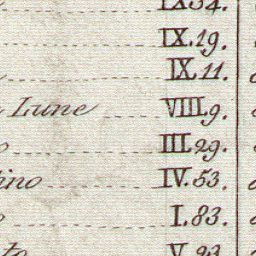 IX.34.
IX.19.
IX.11.
Lune VIII.9.
III.29.
IV.53.
I.83.
V.23.